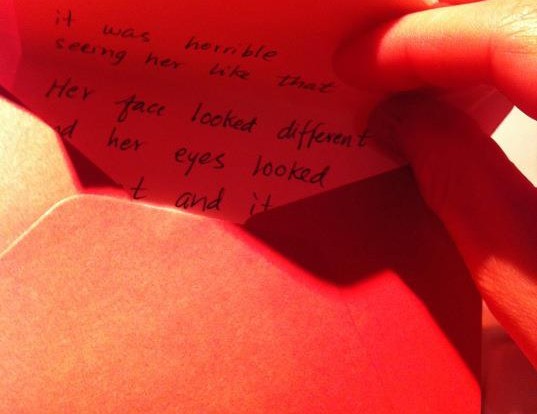 it was horrible
seeing her like that
Her face looked different
her eyes looked
and it